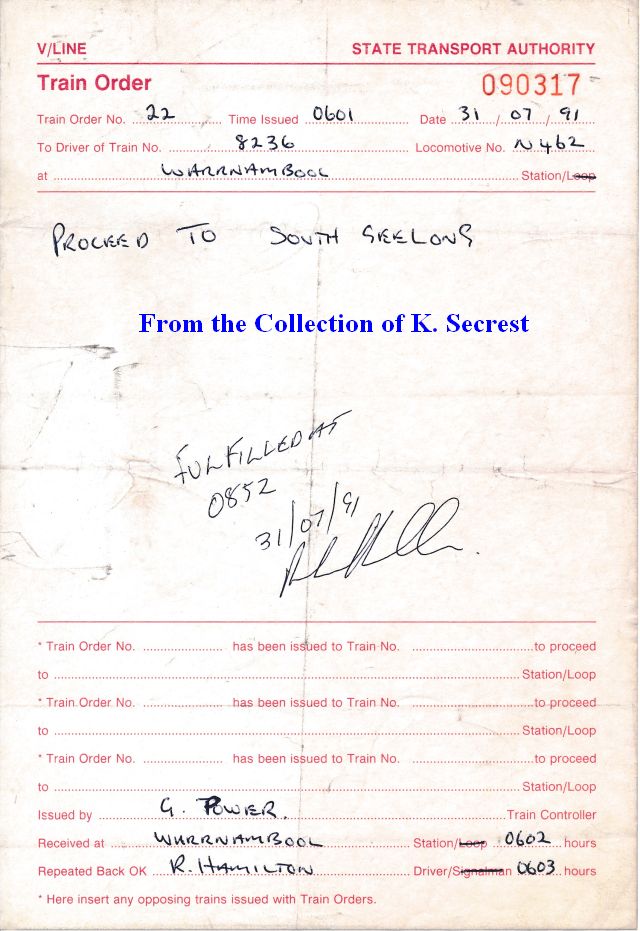 V/LINE STATE TRANSPORT AUTHORITY
Train Order 090317
Train Order No. 22 Time Issued 0601 Date 31 / 07 / 91
To Driver of Train No. 8236 Locomotive No. N462
at WARRNAMBOOL Station/Loop
PROCEED TO SOUTH GEELONG
From the Collection of K. Secrest
FULFILLED AT
0852
31/07/91
* Train Order No. has been issued to Train No. to proceed
to Station/Loop
* Train Order No. has been issued to Train No. to proceed
to Station/Loop
* Train Order No. has been issued to Train No. to proceed
to Station/Loop
Issued by G. POWER. Train Controller
Received at WARRNAMBOOL Station/Loop 0602 hours
Repeated Back OK R. HAMILTON Driver/Signalman 0603 hours
* Here insert any opposing trains issued with Train Orders.